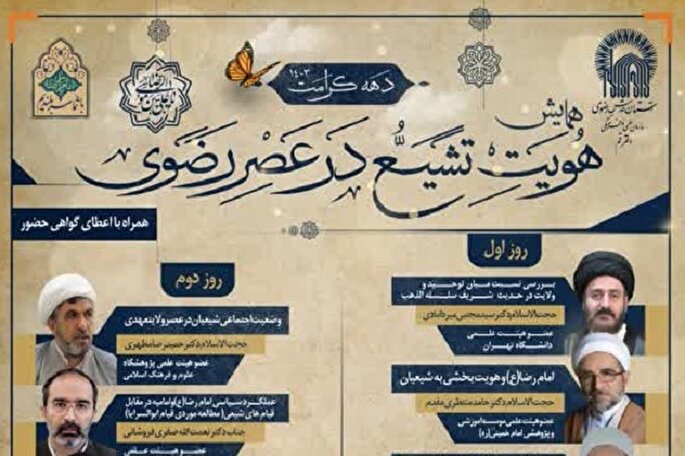 دهه کرامت ۱۴۰۳
همایش
هویتِ تشیّع در عصر رضوی
همراه با اعطای گواهی حضور
روز اول
بررسی نسبت میان توحید و
ولایت در حدیث شریف سلسله الذهب
حجت‌الاسلام دکتر سیدمجتبی میردامادی
عضو هیئت علمی
دانشگاه تهران
امام رضا(ع) و هویت بخشی به شیعیان
حجت‌الاسلام دکتر حامد منتظری مقدم
عضو هیئت علمی موسسه آموزشی
و پژوهش امام خمینی(ره)
روز دوم
وضعیت اجتماعی شیعیان در عصر ولایتعهدی
حجت‌الاسلام دکتر حمیدرضا مطهری
عضو هیئت علمی پژوهشگاه
علوم و فرهنگ اسلامی
عملکرد سیاسی امام رضا(ع) و امامیه در مقابل
قیام های شیعی (مطالعه موردی قیام ابوالسرایا)
جناب دکتر نعمت‌الله صفری فروشانی
عضو هیئت علمی